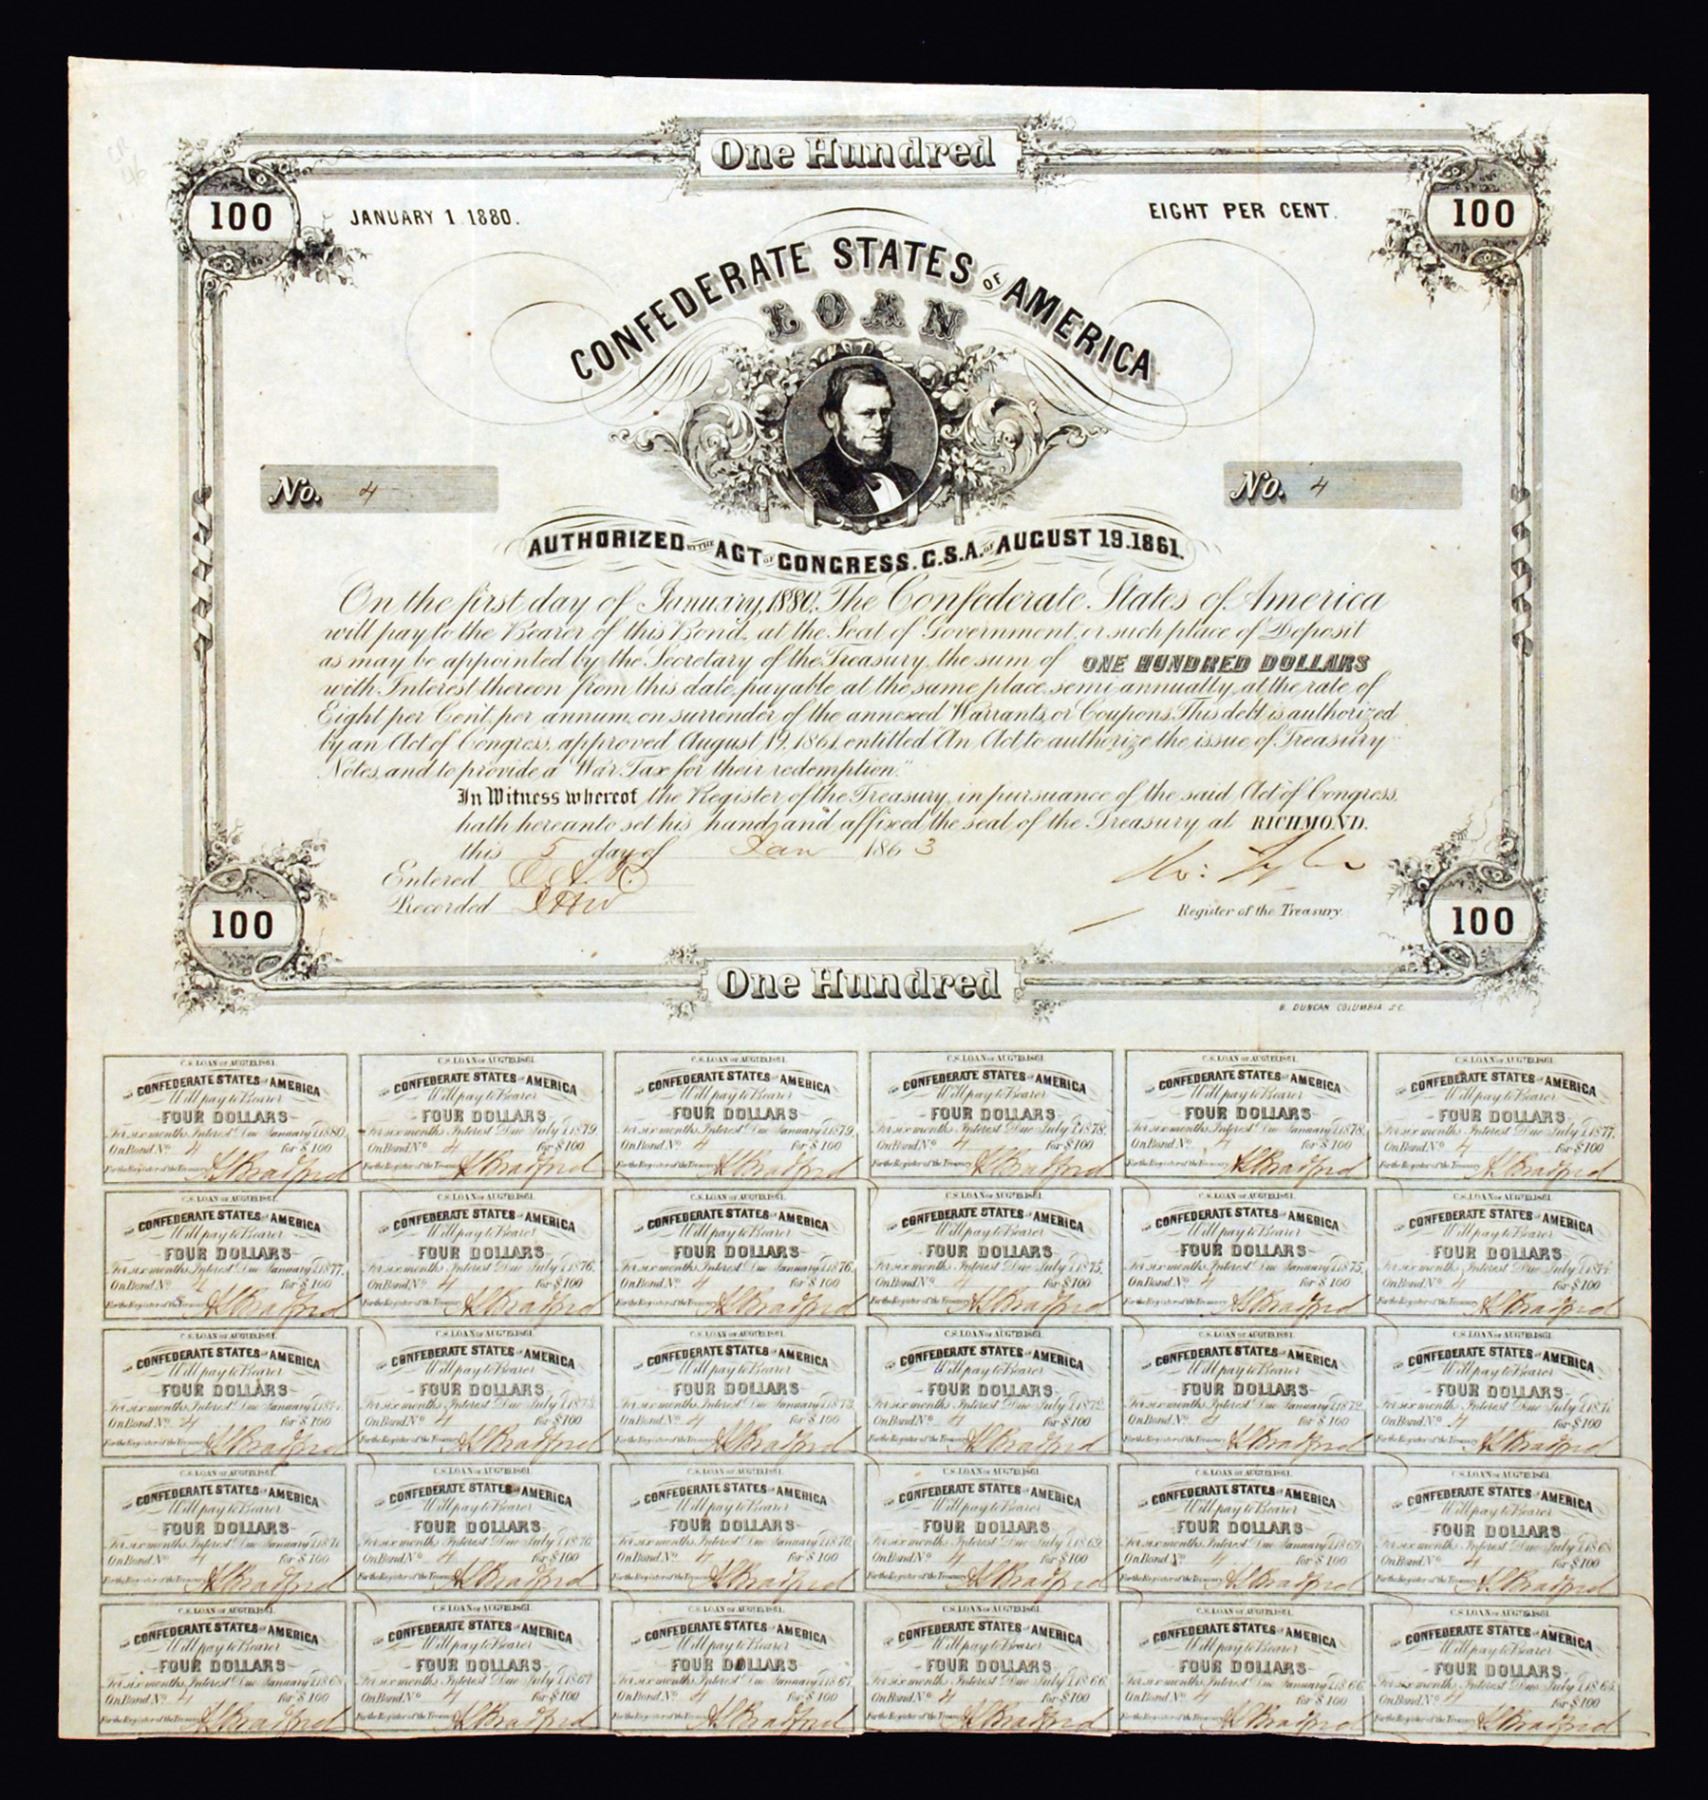 One Hundred
100
JANUARY 1. 1880.
EIGHT PER CENT.
100
CONFEDERATE STATES OF AMERICA
LOAN
No. 4
No. 4
AUTHORIZED BY THE ACT OF CONGRESS. C.S.A. OF AUGUST 19.1861.
On the first day of January, 1880, The Confederate States of America
will pay to the Bearer of this Bond, at the Seat of Government, or such place of Deposit
as may be appointed by the Secretary of the Treasury, the sum of ONE HUNDRED DOLLARS
with Interest thereon from this date, payable at the same place semi annually, at the rate of
Eight per Cent. per annum, on surrender of the annexed Warrants, or Coupons. This debt is authorized
by an Act of Congress, approved August 19, 1861, entitled "An Act, to authorize the issue of Treasury
Notes, and to provide a War Tax for their redemption."
In Witness whereof the Register of the Treasury, in pursuance of the said Act of Congress,
hath hereunto set his hand, and affixed the seal of the Treasury at RICHMOND.
this 5 day of Jan 1863
Entered
Recorded
Ro: Tyler
Register of the Treasury.
100
100
One Hundred
B. DUNCAN. COLUMBIA S.C.
C.S. LOAN OF AUGT 19.1861. C.S. LOAN OF AUGT 19.1861. C.S. LOAN OF AUGT 19.1861. C.S. LOAN OF AUGT 19.1861. C.S. LOAN OF AUGT 19.1861. C.S. LOAN OF AUGT 19.1861.
THE CONFEDERATE STATES OF AMERICA THE CONFEDERATE STATES OF AMERICA THE CONFEDERATE STATES OF AMERICA THE CONFEDERATE STATES OF AMERICA THE CONFEDERATE STATES OF AMERICA THE CONFEDERATE STATES OF AMERICA
Will pay to Bearer Will pay to Bearer Will pay to Bearer Will pay to Bearer Will pay to Bearer Will pay to Bearer
FOUR DOLLARS FOUR DOLLARS FOUR DOLLARS FOUR DOLLARS FOUR DOLLARS FOUR DOLLARS
For six months Interest Due January 1, 1880. For six months Interest Due July 1, 1879. For six months Interest Due January 1, 1879. For six months Interest Due July 1, 1878. For six months Interest Due January 1, 1878. For six months Interest Due July 1, 1877.
On Bond No 4 for $100 On Bond No 4 for $100 On Bond No 4 for $100 On Bond No 4 for $100 On Bond No 4 for $100 On Bond No 4 for $100
For the Register of the Treasury Bradford For the Register of the Treasury Bradford For the Register of the Treasury Bradford For the Register of the Treasury Bradford For the Register of the Treasury Bradford For the Register of the Treasury Bradford
C.S. LOAN OF AUGT 19.1861. C.S. LOAN OF AUGT 19.1861. C.S. LOAN OF AUGT 19.1861. C.S. LOAN OF AUGT 19.1861. C.S. LOAN OF AUGT 19.1861. C.S. LOAN OF AUGT 19.1861.
THE CONFEDERATE STATES OF AMERICA THE CONFEDERATE STATES OF AMERICA THE CONFEDERATE STATES OF AMERICA THE CONFEDERATE STATES OF AMERICA THE CONFEDERATE STATES OF AMERICA THE CONFEDERATE STATES OF AMERICA
Will pay to Bearer Will pay to Bearer Will pay to Bearer Will pay to Bearer Will pay to Bearer Will pay to Bearer
FOUR DOLLARS FOUR DOLLARS FOUR DOLLARS FOUR DOLLARS FOUR DOLLARS FOUR DOLLARS
For six months Interest Due January 1, 1877. For six months Interest Due July 1, 1876. For six months Interest Due January 1, 1876. For six months Interest Due July 1, 1875. For six months Interest Due January 1, 1875. For six months Interest Due July 1, 1874.
On Bond No 4 for $100 On Bond No 4 for $100 On Bond No 4 for $100 On Bond No 4 for $100 On Bond No 4 for $100 On Bond No 4 for $100
For the Register of the Treasury Bradford For the Register of the Treasury Bradford For the Register of the Treasury Bradford For the Register of the Treasury Bradford For the Register of the Treasury Bradford For the Register of the Treasury Bradford
C.S. LOAN OF AUGT 19.1861. C.S. LOAN OF AUGT 19.1861. C.S. LOAN OF AUGT 19.1861. C.S. LOAN OF AUGT 19.1861. C.S. LOAN OF AUGT 19.1861. C.S. LOAN OF AUGT 19.1861.
THE CONFEDERATE STATES OF AMERICA THE CONFEDERATE STATES OF AMERICA THE CONFEDERATE STATES OF AMERICA THE CONFEDERATE STATES OF AMERICA THE CONFEDERATE STATES OF AMERICA THE CONFEDERATE STATES OF AMERICA
Will pay to Bearer Will pay to Bearer Will pay to Bearer Will pay to Bearer Will pay to Bearer Will pay to Bearer
FOUR DOLLARS FOUR DOLLARS FOUR DOLLARS FOUR DOLLARS FOUR DOLLARS FOUR DOLLARS
For six months Interest Due January 1, 1874. For six months Interest Due July 1, 1873. For six months Interest Due January 1, 1873. For six months Interest Due July 1, 1872. For six months Interest Due January 1, 1872. For six months Interest Due July 1, 1871.
On Bond No 4 for $100 On Bond No 4 for $100 On Bond No 4 for $100 On Bond No 4 for $100 On Bond No 4 for $100 On Bond No 4 for $100
For the Register of the Treasury Bradford For the Register of the Treasury Bradford For the Register of the Treasury Bradford For the Register of the Treasury Bradford For the Register of the Treasury Bradford For the Register of the Treasury Bradford
C.S. LOAN OF AUGT 19.1861. C.S. LOAN OF AUGT 19.1861. C.S. LOAN OF AUGT 19.1861. C.S. LOAN OF AUGT 19.1861. C.S. LOAN OF AUGT 19.1861. C.S. LOAN OF AUGT 19.1861.
THE CONFEDERATE STATES OF AMERICA THE CONFEDERATE STATES OF AMERICA THE CONFEDERATE STATES OF AMERICA THE CONFEDERATE STATES OF AMERICA THE CONFEDERATE STATES OF AMERICA THE CONFEDERATE STATES OF AMERICA
Will pay to Bearer Will pay to Bearer Will pay to Bearer Will pay to Bearer Will pay to Bearer Will pay to Bearer
FOUR DOLLARS FOUR DOLLARS FOUR DOLLARS FOUR DOLLARS FOUR DOLLARS FOUR DOLLARS
For six months Interest Due January 1, 1871. For six months Interest Due July 1, 1870. For six months Interest Due January 1, 1870. For six months Interest Due July 1, 1869. For six months Interest Due January 1, 1869. For six months Interest Due July 1, 1868.
On Bond No 4 for $100 On Bond No 4 for $100 On Bond No 4 for $100 On Bond No 4 for $100 On Bond No 4 for $100 On Bond No 4 for $100
For the Register of the Treasury Bradford For the Register of the Treasury Bradford For the Register of the Treasury Bradford For the Register of the Treasury Bradford For the Register of the Treasury Bradford For the Register of the Treasury Bradford
C.S. LOAN OF AUGT 19.1861. C.S. LOAN OF AUGT 19.1861. C.S. LOAN OF AUGT 19.1861. C.S. LOAN OF AUGT 19.1861. C.S. LOAN OF AUGT 19.1861. C.S. LOAN OF AUGT 19.1861.
THE CONFEDERATE STATES OF AMERICA THE CONFEDERATE STATES OF AMERICA THE CONFEDERATE STATES OF AMERICA THE CONFEDERATE STATES OF AMERICA THE CONFEDERATE STATES OF AMERICA THE CONFEDERATE STATES OF AMERICA
Will pay to Bearer Will pay to Bearer Will pay to Bearer Will pay to Bearer Will pay to Bearer Will pay to Bearer
FOUR DOLLARS FOUR DOLLARS FOUR DOLLARS FOUR DOLLARS FOUR DOLLARS FOUR DOLLARS
For six months Interest Due January 1, 1868. For six months Interest Due July 1, 1867. For six months Interest Due January 1, 1867. For six months Interest Due July 1, 1866. For six months Interest Due January 1, 1866. For six months Interest Due July 1, 1865.
On Bond No 4 for $100 On Bond No 4 for $100 On Bond No 4 for $100 On Bond No 4 for $100 On Bond No 4 for $100 On Bond No 4 for $100
For the Register of the Treasury Bradford For the Register of the Treasury Bradford For the Register of the Treasury Bradford For the Register of the Treasury Bradford For the Register of the Treasury Bradford For the Register of the Treasury Bradford